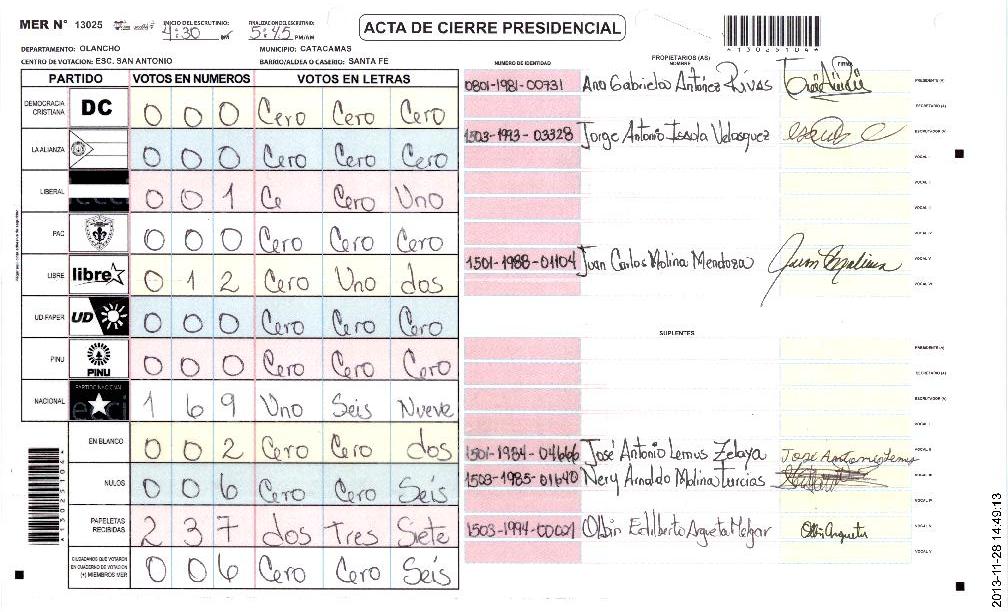 MER N° 13025 INICIO DEL ESCRUTINIO: 4:30 PM FINALIZACION DEL ESCRUTINIO: 5:45 PM/AM
ACTA DE CIERRE PRESIDENCIAL
A13025104A
DEPARTAMENTO: OLANCHO MUNICIPIO: CATACAMAS
CENTRO DE VOTACION: ESC. SAN ANTONIO BARRIO/ALDEA O CASERIO: SANTA FE
PARTIDO VOTOS EN NUMEROS VOTOS EN LETRAS
DEMOCRACIA CRISTIANA DC 0 0 0 Cero Cero Cero
LA ALIANZA 0 0 0 Cero Cero Cero
LIBERAL 0 0 1 Ce Cero Uno
PAC 0 0 0 Cero Cero Cero
LIBRE libre 0 1 2 Cero Uno dos
UD FAPER UD 0 0 0 Cero Cero Cero
PINU PINU 0 0 0 Cero Cero Cero
NACIONAL PARTIDO NACIONAL 1 6 9 Uno Seis Nueve
EN BLANCO 0 0 2 Cero Cero dos
NULOS 0 0 6 Cero Cero Seis
PAPELETAS RECIBIDAS 2 3 7 dos Tres Siete
CIUDADANOS QUE VOTARON EN CUADERNO DE VOTACION (+) MIEMBROS MER 0 0 6 Cero Cero Seis
NUMERO DE IDENTIDAD PROPIETARIOS (AS) NOMBRE FIRMA
0801-1981-00731 Ana Gabriela Antúnez Rivas PRESIDENTE (A)
SECRETARIO (A)
1503-1993-03328 Jorge Antonio Isaola Velasquez ESCRUTADOR (A)
VOCAL I
VOCAL II
VOCAL V
1501-1988-01104 Juan Carlos Molina Mendoza VOCAL V
VOCAL VI
SUPLENTES
PRESIDENTE (A)
SECRETARIO (A)
ESCRUTADOR (A)
VOCAL I
1501-1984-04666 José Antonio Lemus Zelaya José Antonio Lemus VOCAL II
1503-1985-01640 Nery Arnaldo Molina Turcias
VOCAL IV
1503-1994-00021 Olbin Edilberto Argueta Melgar Olbin Argueta VOCAL V
VOCAL V
A13025104A
2013-11-28 14:49:13